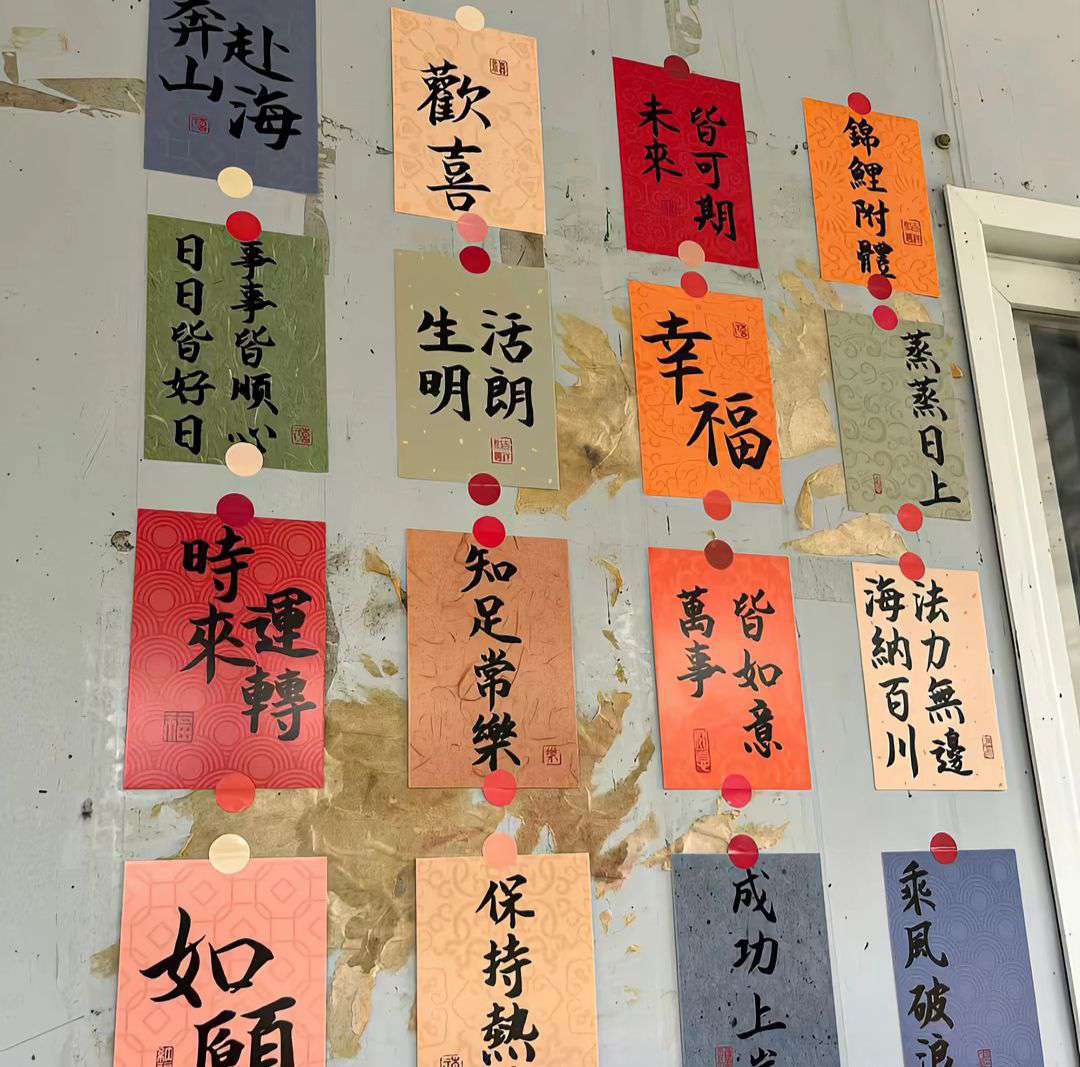 奔山
赴海
歡喜
未來
皆可期
錦鯉附體
日日皆好日
事事皆顺心
生活
明朗
幸福
蒸蒸日上
時來
運轉
知足常樂
萬事
皆如意
海納百川
法力無邊
如願
保持熱
成功上
乘风破浪